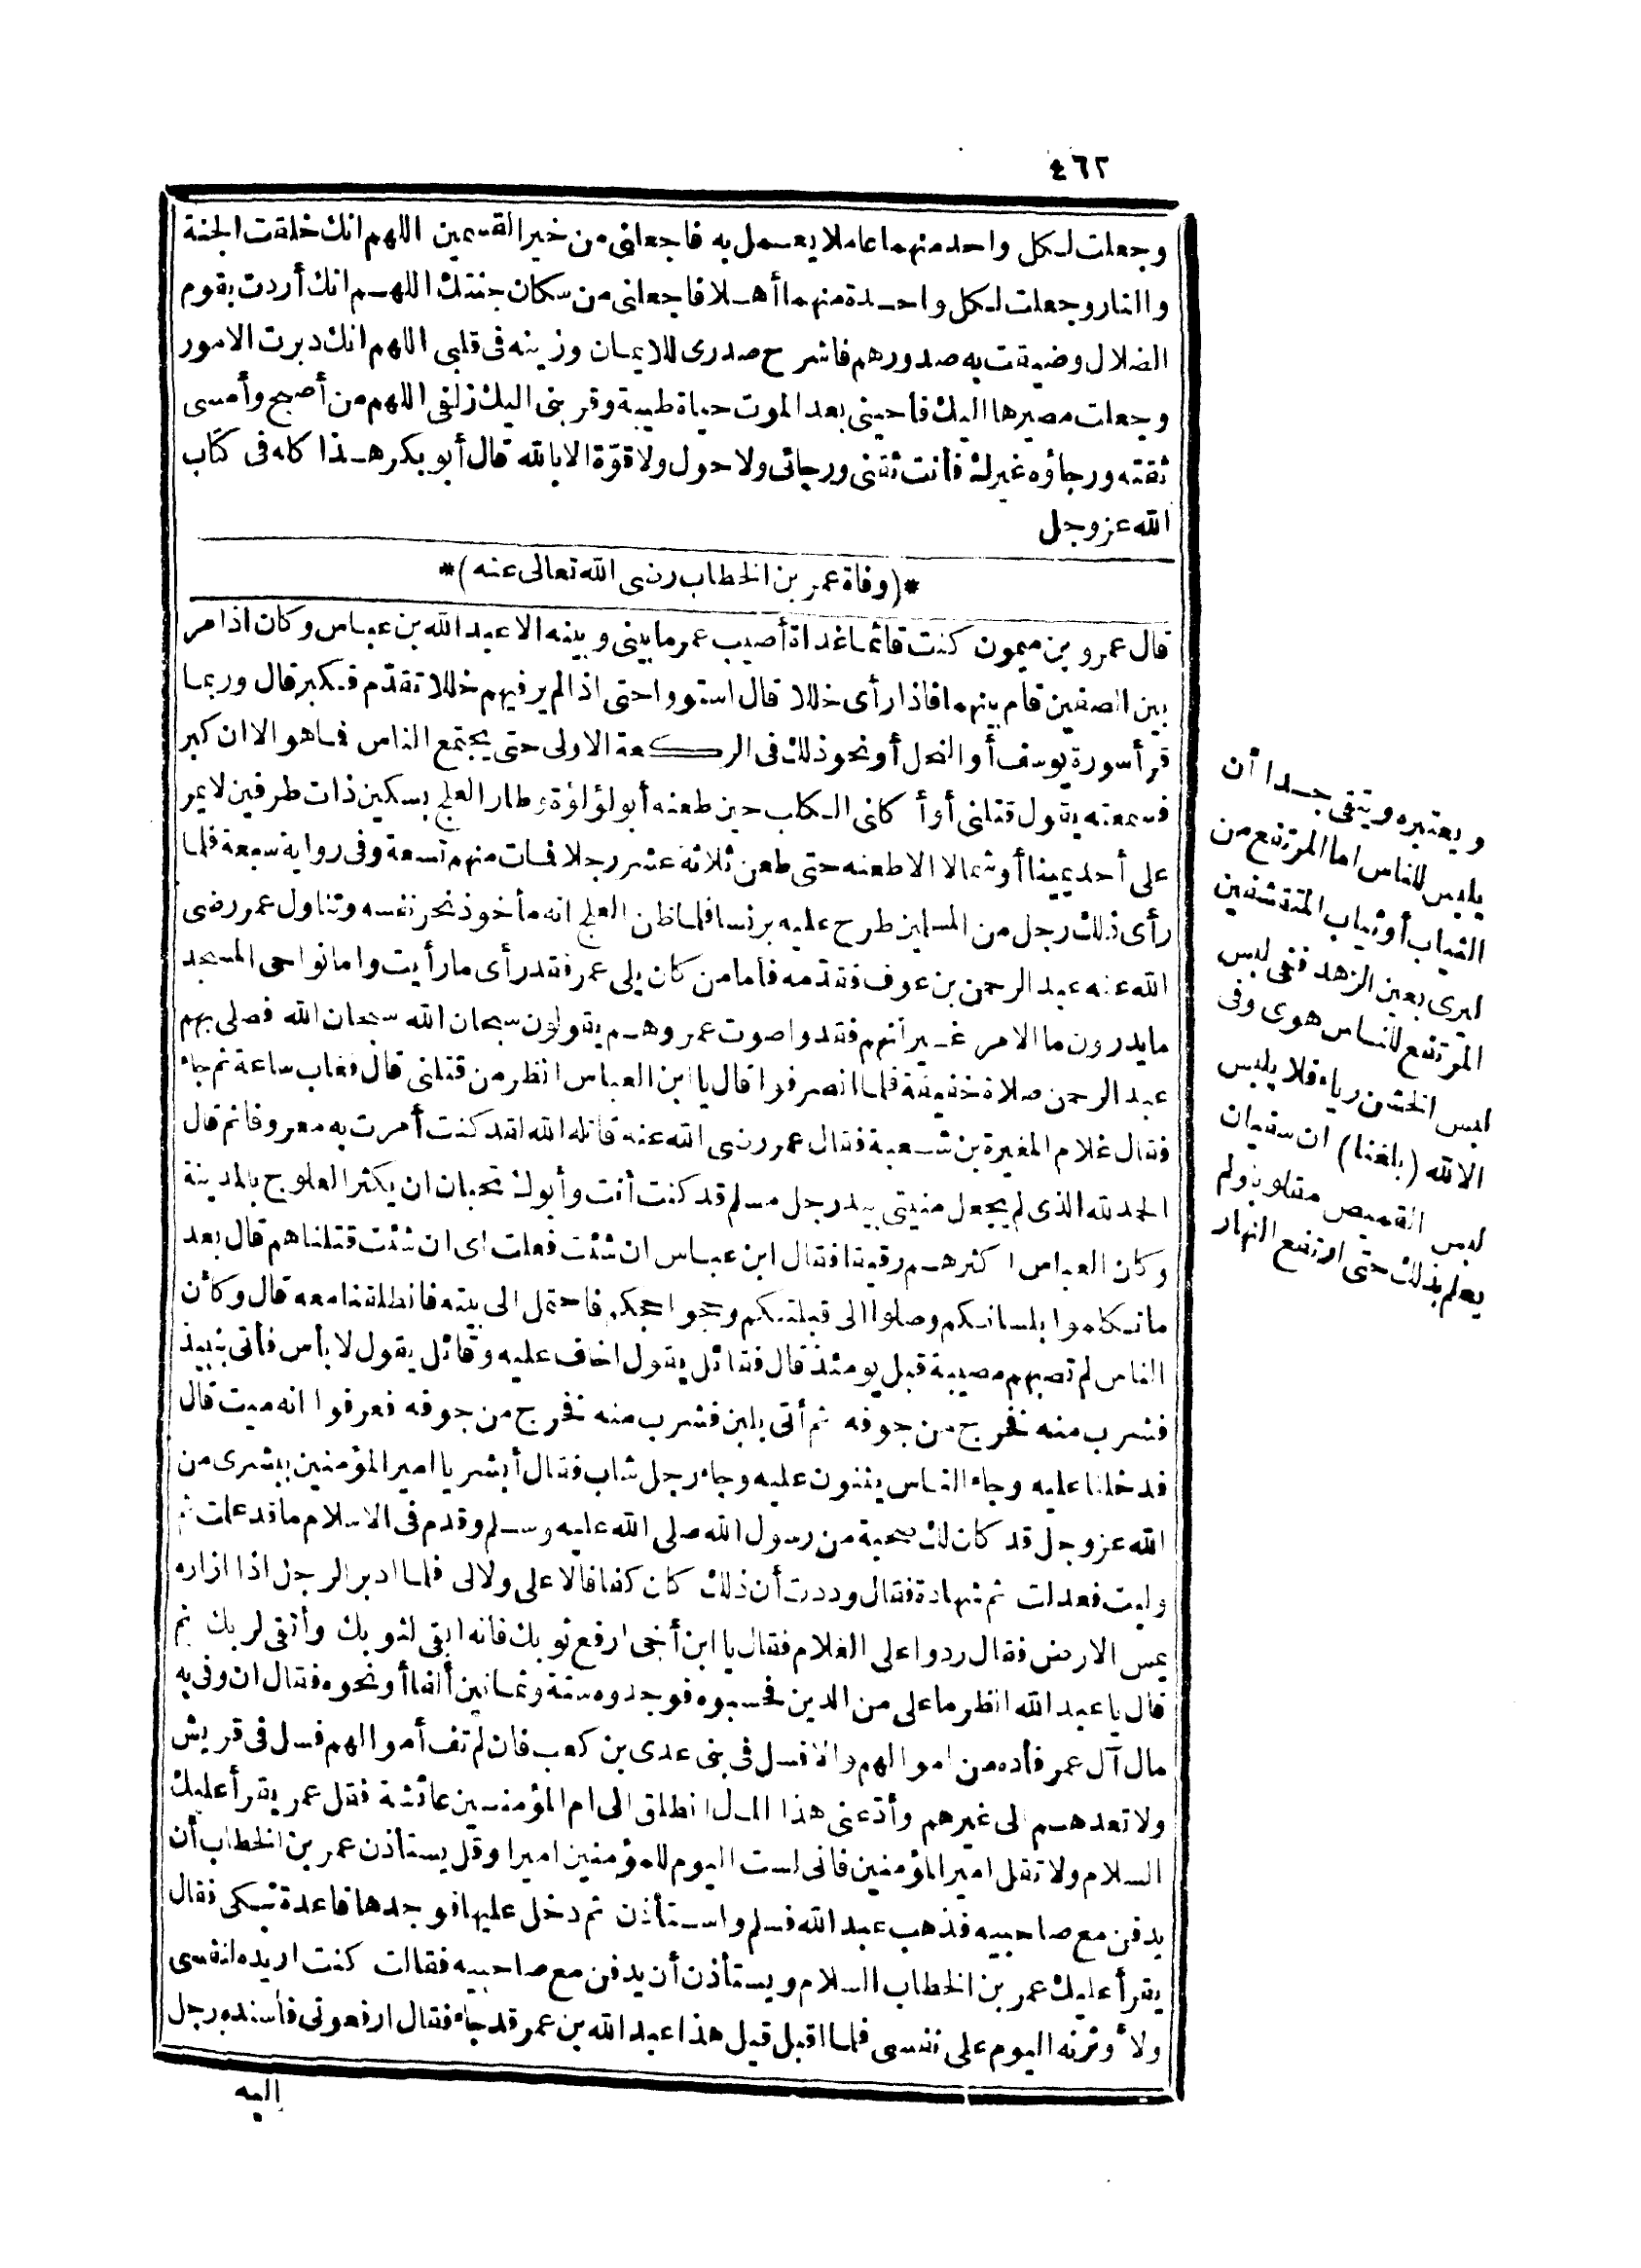 ٤٦٢
وجعلت لكل واحد منهما عاملا يعمل به فاجعلنى من خير القسمين اللهم انك خلقت الجنة
والنار وجعلت لكل واحدة منهما أهلا فاجعلنى من سكان جنتك اللهم انك أردت بقوم
الضلال وضيقت به صدورهم فاشرح صدرى للايمان وزينه فى قلبى اللهم انك دبرت الامور
وجعلت مصيرها اليك فأحينى بعد الموت حياة طيبة وقربنى اليك زلفى اللهم من أصبح وأمسى
ثقته ورجاؤه غيرك فأنت ثقتى ورجائى ولا حول ولا قوّة الا بالله قال أبو بكر هذا كله فى كتاب
الله عز وجل
*(وفاة عمر بن الخطاب رضى الله تعالى عنه)*
قال عمرو بن ميمون كنت قائما غداة أصيب عمر ما بينى وبينه الا عبد الله بن عباس وكان اذا مر
بين الصفين قام بينهما فاذا رأى خللا قال استووا حتى اذا لم ير فيهم خللا تقدّم فكبر قال وربما
قرأ سورة يوسف أو النحل أو نحو ذلك فى الركعة الاولى حتى يجتمع الناس فما هو الا ان كبر
فسمعته يقول قتلنى أو أكلنى الكلب حين طعنه أبو لؤلؤة وطار العلج بسكين ذات طرفين لا يمر
على أحد يمينا أو شمالا الا طعنه حتى طعن ثلاثة عشر رجلا فمات منهم تسعة وفى رواية سبعة فلما
رأى ذلك رجل من المسلمين طرح عليه برنسا فلما ظن العلج انه مأخوذ نحر نفسه وتناول عمر رضى
الله عنه عبد الرحمن بن عوف فقدّمه فأما من كان يلى عمر فقد رأى ما رأيت واما نواحى المسجد
ما يدرون ما الامر غير أنهم فقدوا صوت عمر وهم يقولون سبحان الله سبحان الله فصلى بهم
عبد الرحمن صلاة خفيفة فلما انصرفوا قال يا ابن العباس انظر من قتلنى قال فغاب ساعة ثم جاء
فقال غلام المغيرة بن شعبة فقال عمر رضى الله عنه قاتله الله لقد كنت أمرت به معروفا ثم قال
الحمد لله الذى لم يجعل منيتى بيد رجل مسلم قد كنت أنت وأبوك تحبان ان يكثر العلوج بالمدينة
وكان العباس اكثرهم رقيقا فقال ابن عباس ان شئت فعلت اى ان شئت قتلناهم قال بعد
ما تكلموا بلسانكم وصلوا الى قبلتكم وحجوا حجكم فاحتمل الى بيته فانطلقنا معه قال وكأن
الناس لم تصبهم مصيبة قبل يومئذ قال فقائل يقول اخاف عليه وقائل يقول لا بأس فأتى بنبيذ
فشرب منه فخرج من جوفه ثم أتى بلبن فشرب منه فخرج من جوفه فعرفوا انه ميت قال
فدخلنا عليه وجاء الناس يثنون عليه وجاء رجل شاب فقال أبشر يا امير المؤمنين ببشرى من
الله عز وجل قد كان لك صحبة من رسول الله صلى الله عليه وسلم وقدم فى الاسلام ما قد علمت ثم
وليت فعدلت ثم شهادة فقال وددت أن ذلك كان كفافا لا على ولا لى فلما ادبر الرجل اذا ازاره
يمس الارض فقال ردوا على الغلام فقال يا ابن أخى ارفع ثوبك فانه ابقى لثوبك وأتقى لربك ثم
قال يا عبد الله انظر ما على من الدين فحسبوه فوجدوه ستة وثمانين ألفا أو نحوه فقال ان وفى به
مال آل عمر فأده من اموالهم والا فسل فى بنى عدى بن كعب فان لم تف أموالهم فسل فى قريش
ولا تعدهم الى غيرهم وأدّ عنى هذا المال انطلق الى ام المؤمنين عائشة فقل عمر يقرأ عليك
السلام ولا تقل امير المؤمنين فانى لست اليوم للمؤمنين اميرا وقل يستأذن عمر بن الخطاب أن
يدفن مع صاحبيه فذهب عبد الله فسلم واستأذن ثم دخل عليها فوجدها قاعدة تبكى فقال
يقرأ عليك عمر بن الخطاب السلام ويستأذن أن يدفن مع صاحبيه فقالت كنت اريده لنفسى
ولأوثرنه اليوم على نفسى فلما اقبل قيل هذا عبد الله بن عمر قد جاء فقال ارفعونى فأسنده رجل
اليه
ويعتبره ويتقى جدا أن
يلبس للناس اما المرتفع من
الثياب أو ثياب المتقشفين
ليرى بعين الزهد ففى لبس
المرتفع للناس هوى وفى
لبس الخشن رياء فلا يلبس
الا لله (بلغنا) ان سفيان
لبس القميص مقلوبا ولم
يعلم بذلك حتى ارتفع النهار